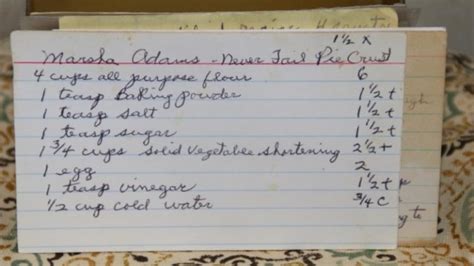 1½ X
Marsha Adams - Never Fail Pie Crust
4 cups all purpose flour 6
1 teasp Baking powder 1½ t
1 teasp salt 1½ t
1 teasp sugar 1½ t
1 3/4 cups solid vegetable shortening 2½ +
1 egg 2
1 teasp vinegar 1½ t
½ cup cold water 3/4 C